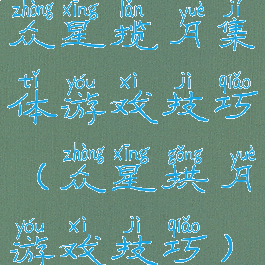 zhòng xīng lǎn yuè jí
众星揽月集
tǐ yóu xì jì qiǎo
体游戏技巧
zhòng xīng gǒng yuè
(众星拱月
yóu xì jì qiǎo
游戏技巧)